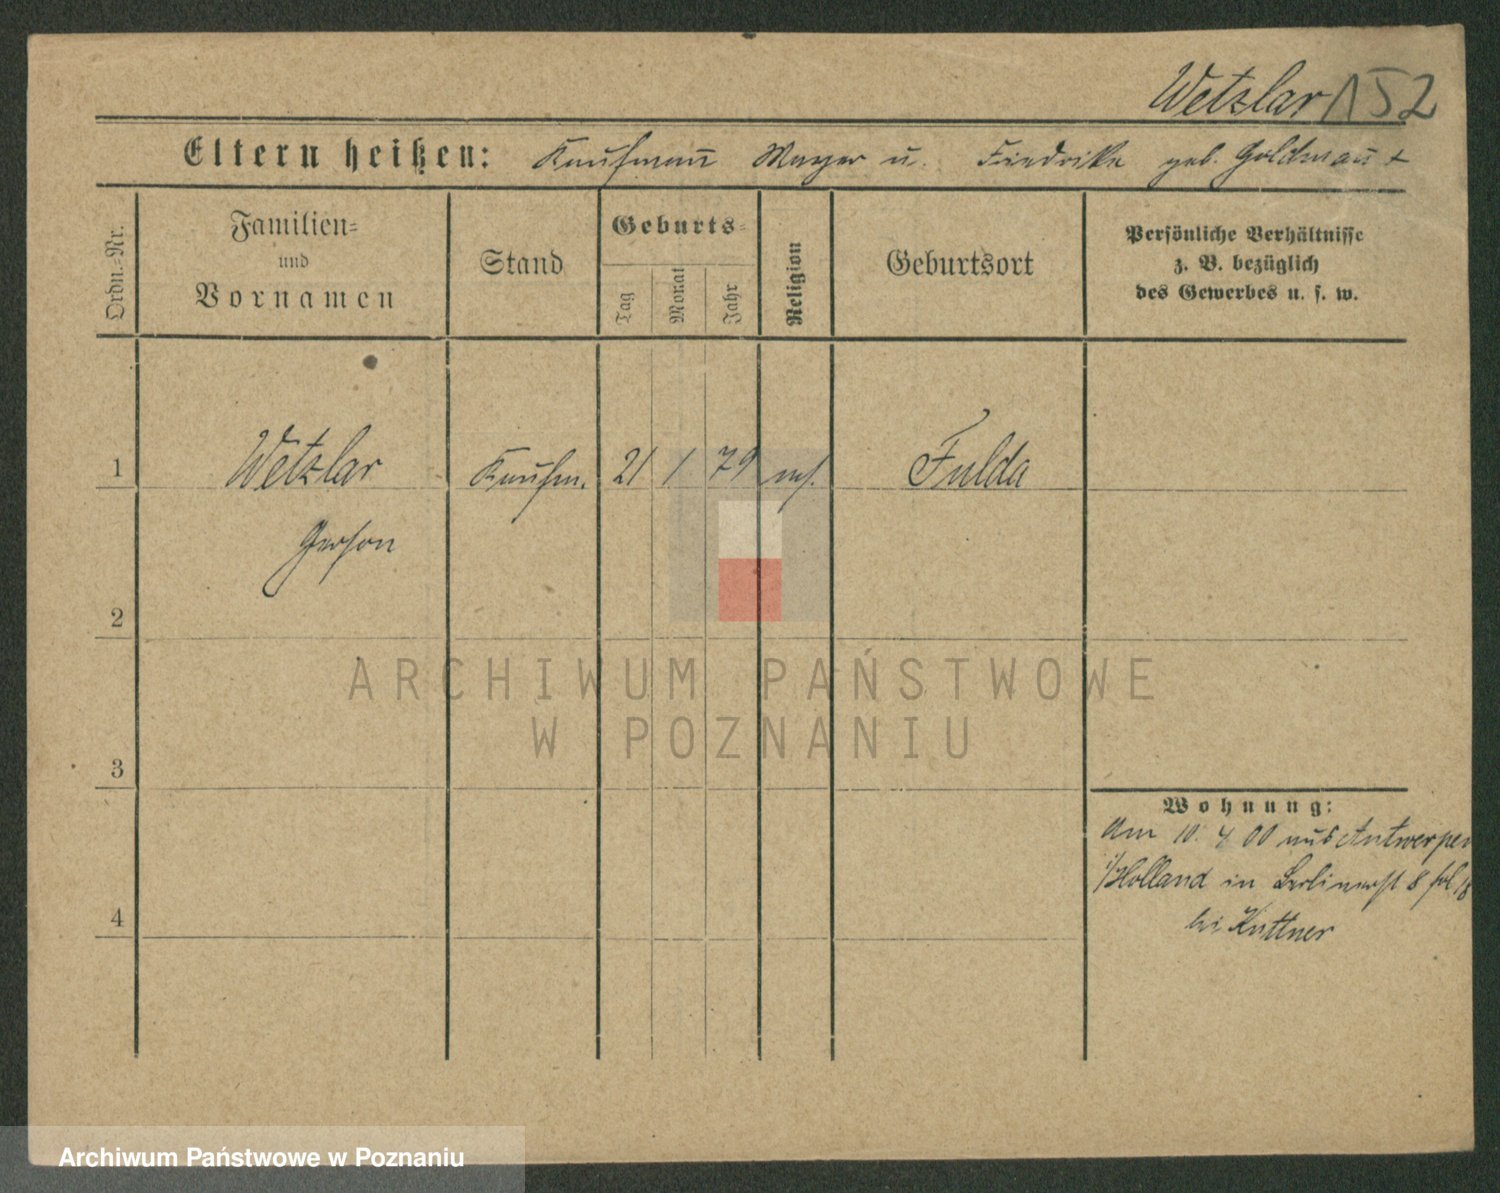 Wetzlar 152
Eltern heißen: Kaufmann Mayer u. Friedrike geb. Goldmann +
Ordn.-Nr.
Familien-
und
Vornamen
Stand
Geburts-
Tag
Monat
Jahr
Religion
Geburtsort
Persönliche Verhältnisse
z. B. bezüglich
des Gewerbes u. s. w.
1 Wetzlar Kaufm. 21 1 79 mos. Fulda
Gerson
2
ARCHIWUM PAŃSTWOWE
W POZNANIU
3
Wohnung:
Am 10. 4 00 aus Antwerpen
i/Holland in Berlinerst 8 fol 18
bei Kuttner
4
Archiwum Państwowe w Poznaniu